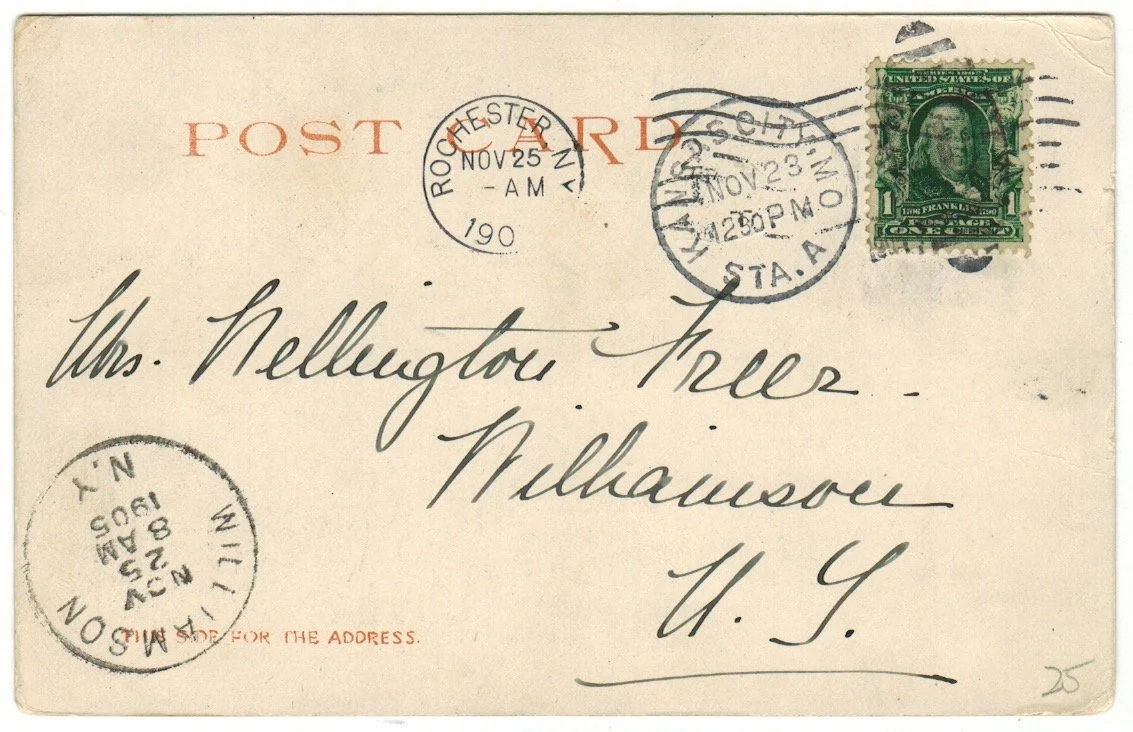 POST CARD
ROCHESTER N
NOV 25
-AM
190
KANSAS CITY, MO
NOV 23
12 30 PM
STA. A
SERIES 1902
UNITED STATES OF
AMERICA
1 1
1706 FRANKLIN 1790
POSTAGE
ONE CENT
Mrs. Wellington Freer.
Williamson
N. Y.
WILLIAMSON
N.Y.
NOV
25
8 AM
1905
THIS SIDE FOR THE ADDRESS.
25